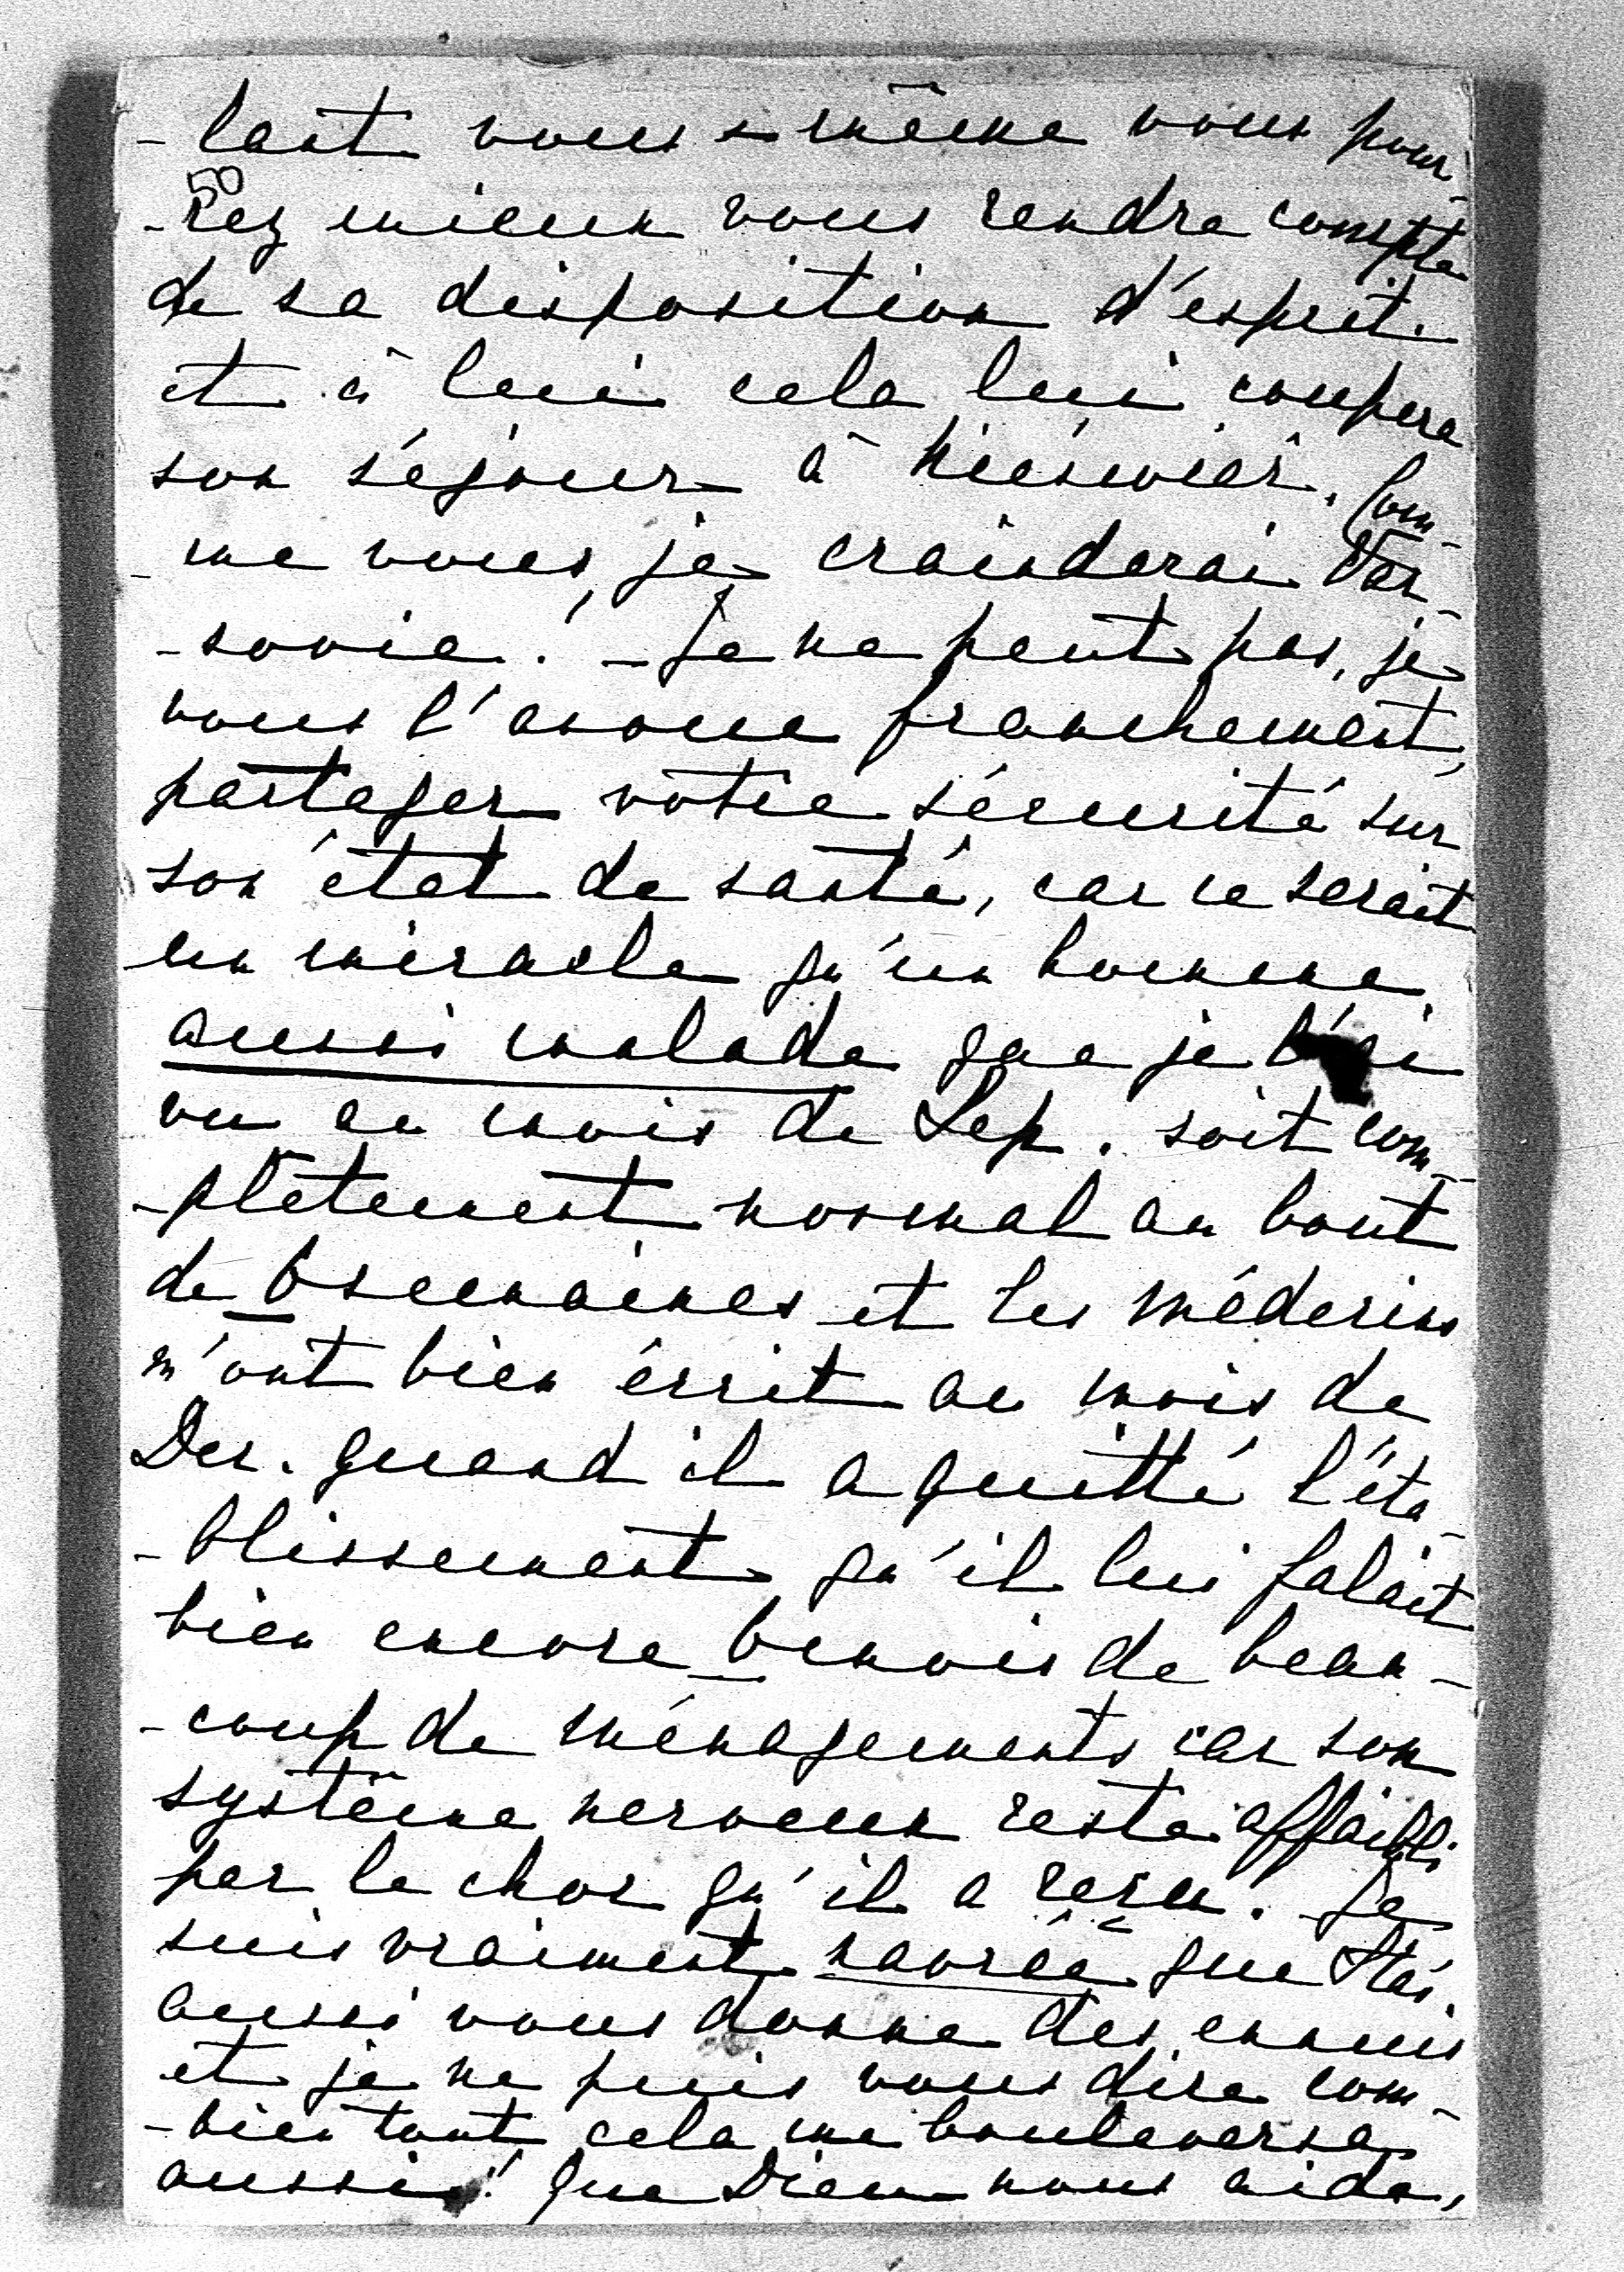 -lant vous-même vous pour-
50
-rez mieux vous rendre compte
de sa disposition d'esprit.
et à lui cela lui coupera
son séjour à Nieśwież. Com-
-me vous, je crainderai Var-
-sovie! - Je ne peut pas, je
vous l'avoue franchement,
partager votre sécurité sur
son état de santé, car ce serait
un miracle qu'un homme
aussi malade que je l'ai
vu au mois de Sep. soit com-
-plètement normal au bout
de 6 semaines et les médecins
m'ont bien écrit au mois de
Dec. quand il a quitté l'éta-
-blissement qu'il lui falait
bien encore 6 mois de beau-
-coup de ménagements car son
système nerveux reste affaibli
par le choc qu'il a reçu. Je
suis vraiment navrée que Stas.
aussi vous donne des ennuis
et je ne puis vous dire com-
-bien tout cela me bouleverse
aussi! Que Dieu nous aide,